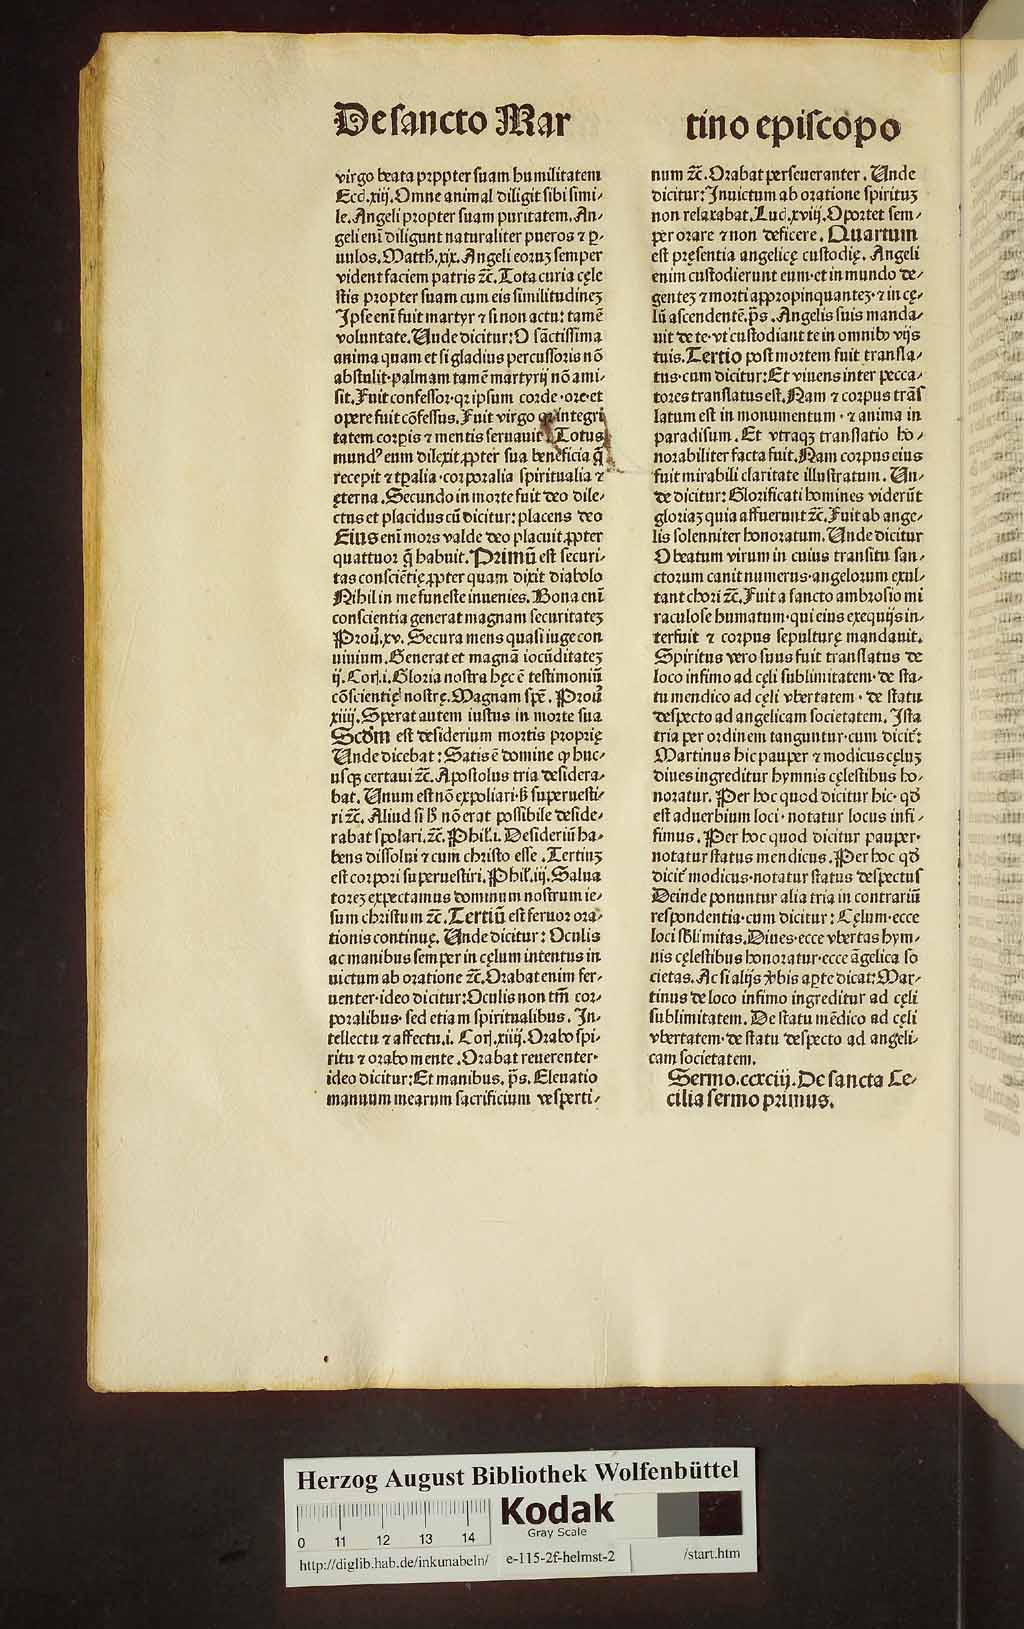 De sancto Mar
tino episcopo
virgo beata prppter suam humilitatem
Eccl̓.xiij.Omne animal diligit sibi simi⸗
le.Angeli propter suam puritatem.An⸗
geli enī diligunt naturaliter pueros ⁊ ꝑ⸗
uulos.Matth̓.xix.Angeli eoruꝫ semper
vident faciem patris ⁊c̄.Tota curia cęle
stis propter suam cum eis similitudineꝫ
Ipse enī fuit martyr ⁊ si non actu: tamē
voluntate.Unde dicitur:O sāctissima
anima quam et si gladius percussoris nō
abstulit·palmam tamē martyrij nō ami⸗
sit.Fuit confessor·qꝛ ipsum corde·ore·et
opere fuit cōfessus.Fuit virgo qꝛ integri
tatem corpis ⁊ mentis seruauit.Totus
mundꝰ eum dilexit ꝓpter sua beneficia q̄
recepit ⁊ tꝑalia·corporalia spiritualia ⁊
ęterna.Secundo in morte fuit deo dile⸗
ctus et placidus cū dicitur: placens deo
Eius enī mors valde deo placuit ꝓpter
quattuor q̄ habuit.Primū est securi⸗
tas conscientię ꝓpter quam dixit diabolo
Nihil in me funeste inuenies.Bona enī
conscientia generat magnam securitateꝫ
Prou̓.xv.Secura mens quasi iuge con
uiuium.Generat et magnā iocūditateꝫ
ij.Corļ.i.Gloria nostra hęc ē testimoniū
cōscientię nostrę.Magnam spē.Prou̓
xiiij.Sperat autem iustus in morte sua
Scd̓m est desiderium mortis proprię
Unde dicebat:Satis ē domine ꝙ huc⸗
usqꝫ certaui ⁊c̄.Apostolus tria desidera⸗
bat.Unum est nō expoliari·ß superuesti⸗
ri ⁊c̄.Aliud si ß nō erat possibile deside⸗
rabat spolari.⁊c̄.Phil̓.i.Desideriū ha⸗
bens dissolui ⁊ cum christo esse.Tertiuꝫ
est corpori superuestiri.Phil̓.iij.Salua
toreꝫ expectamus dominum nostrum ie⸗
sum christum ⁊c̄.Tertiū est feruor ora⸗
tionis continuę.Unde dicitur:Oculis
ac manibus semper in cęlum intentus in
uictum ab oratione ⁊c̄.Orabat enim fer⸗
uenter·ideo dicitur:Oculis non tm̄ cor⸗
poralibus·sed etiam spiritualibus.In⸗
tellectu ⁊ affectu.i.Corļ.xiiij.Orabo spi⸗
ritu ⁊ orabo mente.Orabat reuerenter·
ideo dicitur:Et manibus.p̄s.Eleuatio
manuum mearum sacrificium vesperti⸗
num ⁊c̄.Orabat perseueranter.Unde
dicitur:Inuictum ab oratione spirituꝫ
non relaxabat.Luc̓.xviij.Oportet sem⸗
per orare ⁊ non deficere.Quartum
est pręsentia angelicę custodię.Angeli
enim custodierunt eum·et in mundo de⸗
genteꝫ ⁊ morti appropinquanteꝫ·⁊ in cę⸗
lū ascendentē.p̄s.Angelis suis manda⸗
uit de te·vt custodiant te in omnibꝰ vijs
tuis.Tertio post mortem fuit transla⸗
tus·cum dicitur:Et viuens inter pecca⸗
tores translatus est.Nam ⁊ corpus trās
latum est in monumentum·⁊ anima in
paradisum.Et vtraqꝫ translatio ho⸗
norabiliter facta fuit.Nam corpus eius
fuit mirabili claritate illustratum.Un⸗
de dicitur:Glorificati homines viderūt
gloriaꝫ quia affuerunt ⁊c̄.Fuit ab ange⸗
lis solenniter honoratum.Unde dicitur
O beatum virum in cuius transitu san⸗
ctorum canit numerus·angelorum exul⸗
tant chori ⁊c̄.Fuit a sancto ambrosio mi
raculose humatum·qui eius exequijs in⸗
terfuit ⁊ corpus sepulturę mandauit.
Spiritus vero suus fuit translatus de
loco infimo ad cęli sublimitatem·de sta⸗
tu mendico ad cęli vbertatem·de statu
despecto ad angelicam societatem.Ista
tria per ordinem tanguntur·cum dicit᷑:
Martinus hic pauper ⁊ modicus cęluꝫ
diues ingreditur hymnis cęlestibus ho⸗
noratur.Per hoc quod dicitur hic·qd̓
est aduerbium loci·notatur locus infi⸗
fimus.Per hoc quod dicitur pauper·
notatur status mendicus.Per hoc qd̓
dicit᷑ modicus·notatur status despectus
Deinde ponuntur alia tria in contrariū
respondentia·cum dicitur:Cęlum·ecce
loci sb̓limitas.Diues·ecce vbertas hym⸗
nis cęlestibus honoratur·ecce āgelica so
cietas.Ac si alijs v̓bis aꝑte dicat:Mar⸗
tinus de loco infimo ingreditur ad cęli
sublimitatem.De statu mēdico ad cęli
vbertatem·de statu despecto ad angeli⸗
cam societatem.
Sermo.ccxciij.De sancta Ce⸗
cilia sermo primus.
Herzog August Bibliothek Wolfenbüttel
Kodak
Gray Scale
0 11 12 13 14
http://diglib.hab.de/inkunabeln/ e-115-2f-helmst-2 /start.htm